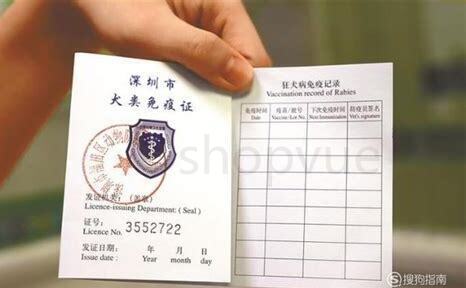 深圳市
犬类免疫证
发证机关：（盖章）
Licence-issuing Department: ( Seal )
证号：
Licence No. 3552722
发证日期： 年 月 日
Issue date : Year month day
狂犬病免疫记录
Vaccination record of Rabies
免疫时间 疫苗/批号 下次免疫时间 防疫员签名
Date Vaccine/Lot No. Next Immunization Vet's signature
shopvue
S 搜狗指南